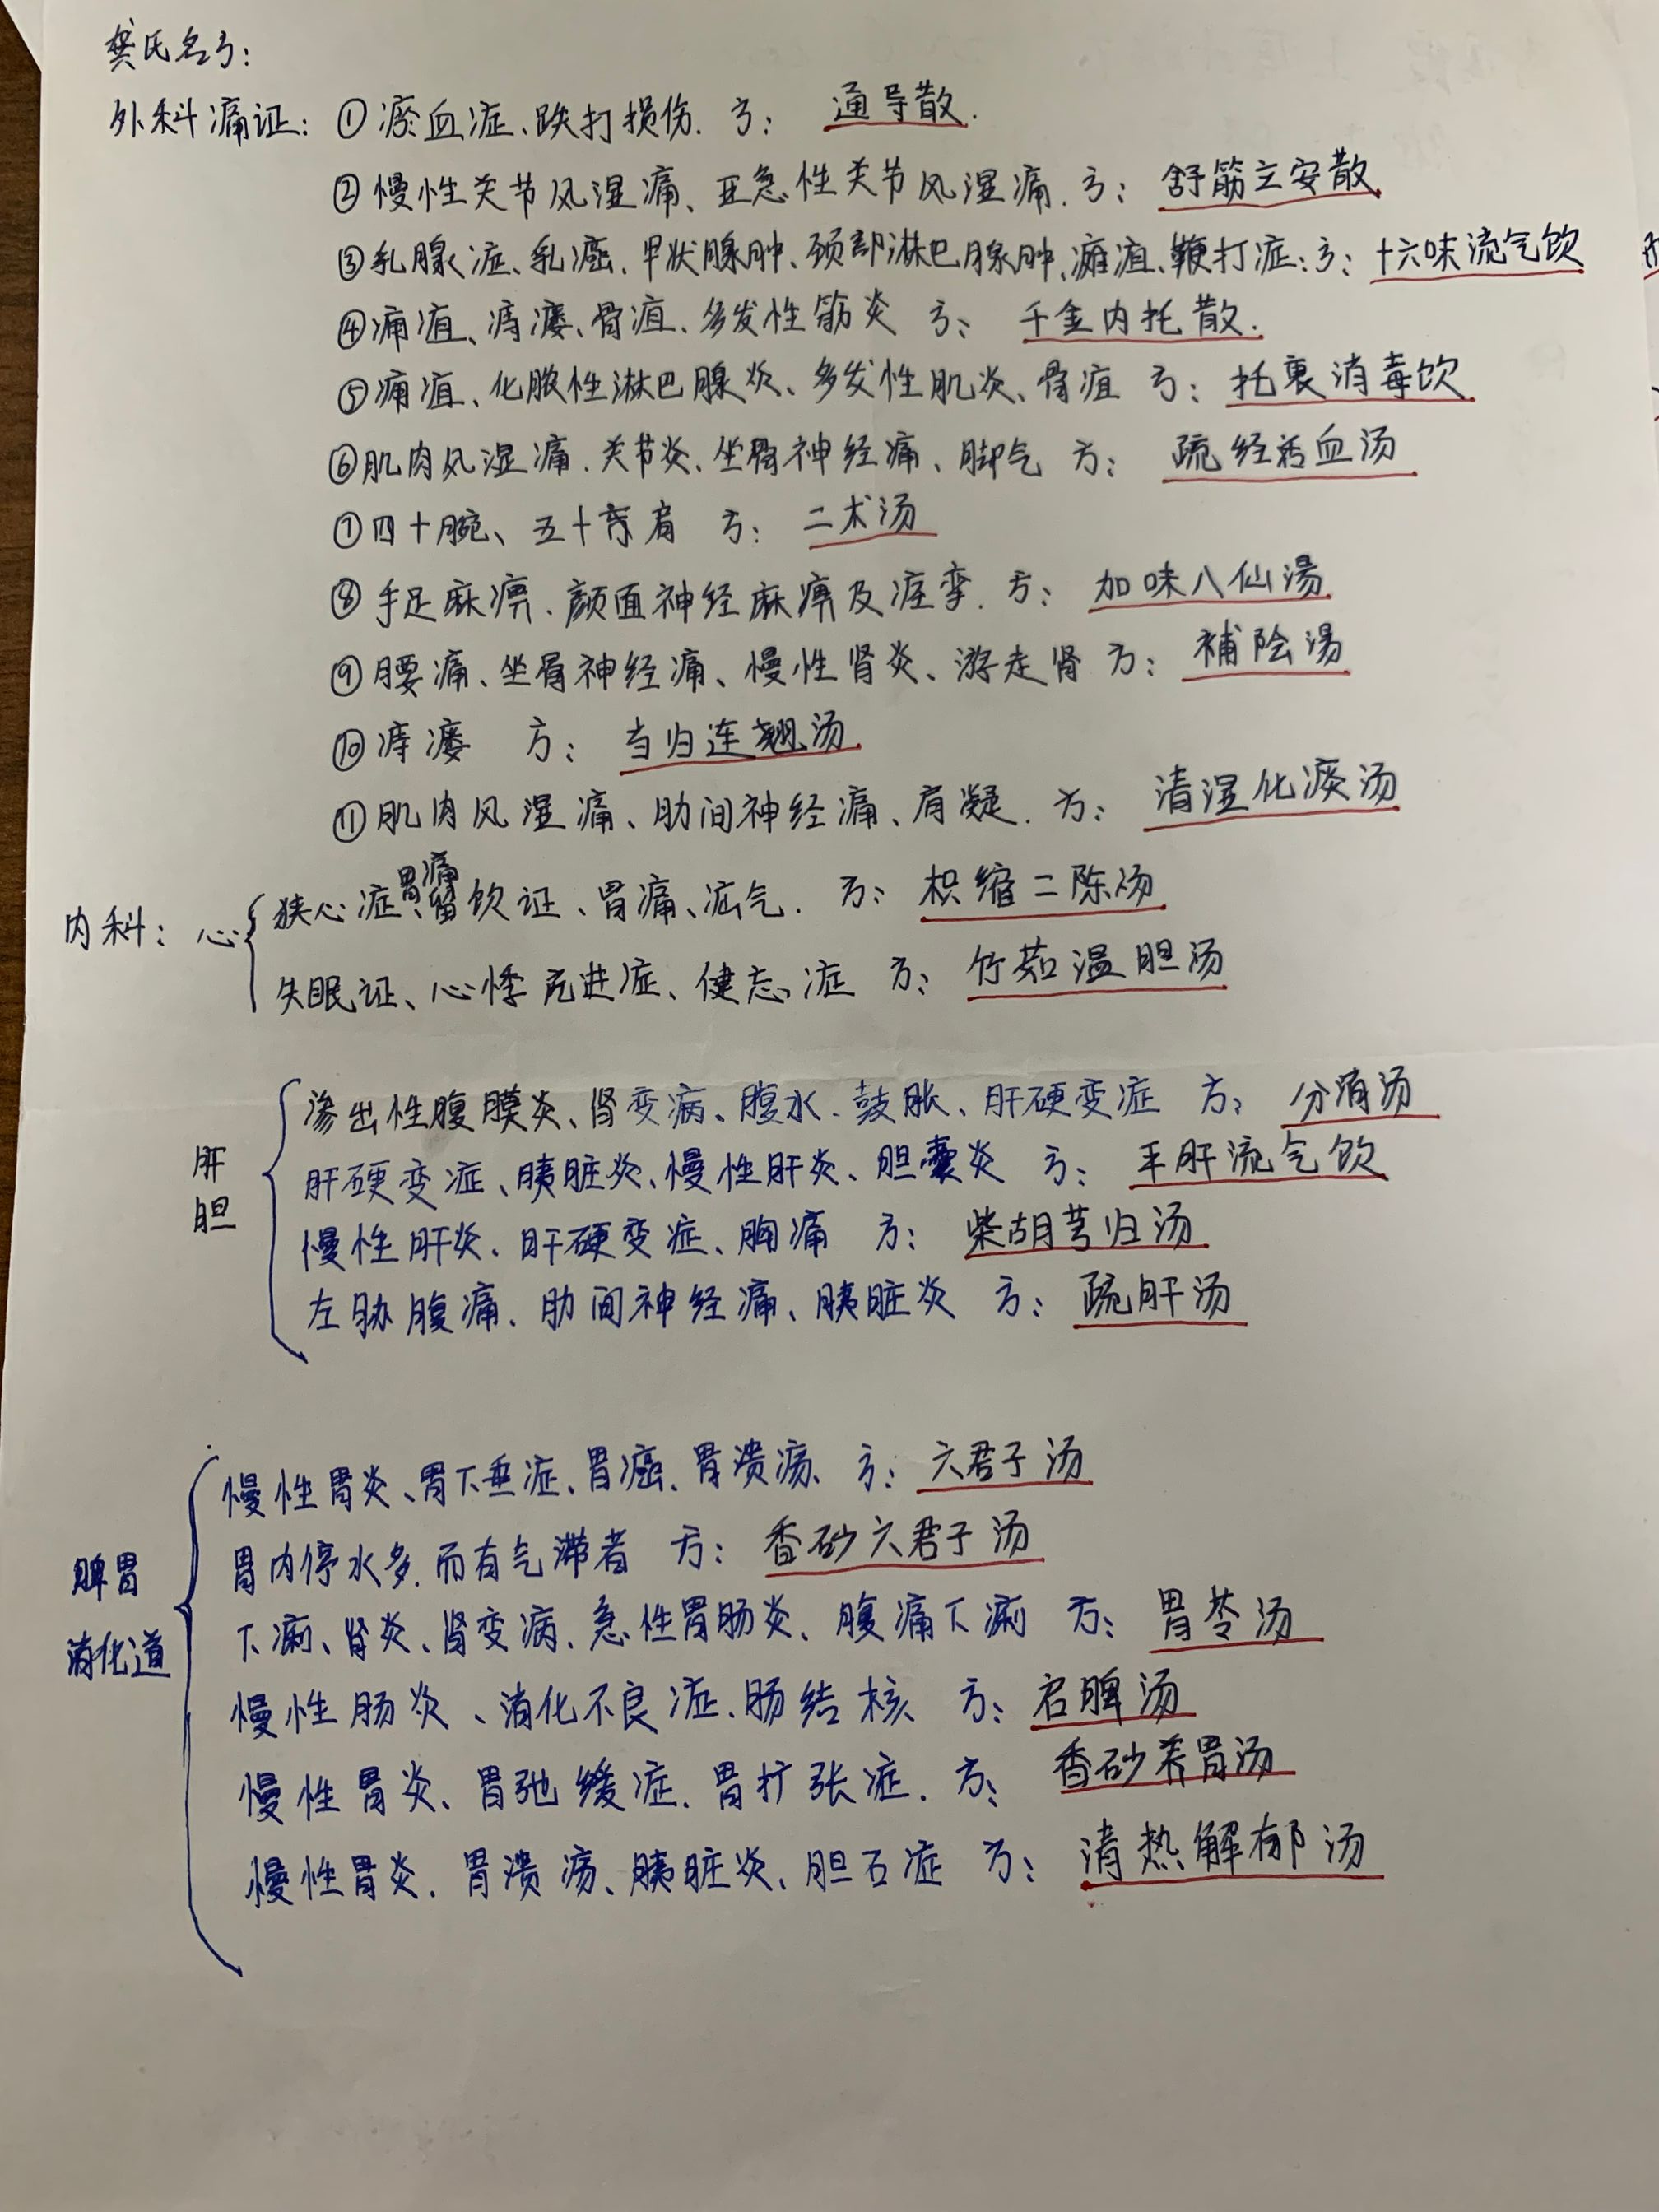 龚氏名方:
外科痛证: ①瘀血症、跌打损伤. 方: 通导散.
②慢性关节风湿痛、亚急性关节风湿痛. 方: 舒筋立安散
③乳腺症、乳癌、甲状腺肿、颈部淋巴腺肿、瘫疽、鞭打症: 方: 十六味流气饮
④痈疽、痔瘘、骨疽、多发性筋炎 方: 千金内托散.
⑤痈疽、化脓性淋巴腺炎、多发性肌炎、骨疽 方: 托裏消毒饮
⑥肌肉风湿痛、关节炎、坐骨神经痛、脚气 方: 疏经活血汤
⑦四十腕、五十肩 方: 二术汤
⑧手足麻痹、颜面神经麻痹及痉挛. 方: 加味八仙湯
⑨腰痛、坐骨神经痛、慢性肾炎、游走肾 方: 補陰湯
⑩痔瘘 方: 当归连翘汤.
⑪肌肉风湿痛、肋间神经痛、肩凝. 方: 清湿化痰汤
胃痛
内科: 心 狭心症、留饮证、胃痛、疝气. 方: 枳缩二陈汤
失眠证、心悸亢进症、健忘症 方: 竹茹温胆汤
渗出性腹膜炎、肾变病、腹水、鼓胀、肝硬变症 方: 分消汤
肝胆 肝硬变症、胰脏炎、慢性肝炎、胆囊炎 方: 平肝流气饮
慢性肝炎、肝硬变症、胸痛 方: 柴胡芎归汤
左胁腹痛、肋间神经痛、胰脏炎 方: 疏肝汤
慢性胃炎、胃下垂症、胃癌、胃溃疡、方: 六君子汤
胃内停水多.而有气滞者 方: 香砂六君子汤
脾胃消化道 下痢、肾炎、肾变病、急性胃肠炎、腹痛下痢 方: 胃苓汤
慢性肠炎、消化不良症、肠结核 方: 启脾汤
慢性胃炎、胃弛缓症、胃扩张症. 方: 香砂养胃汤
慢性胃炎、胃溃疡、胰脏炎、胆石症 方: 清热解郁汤